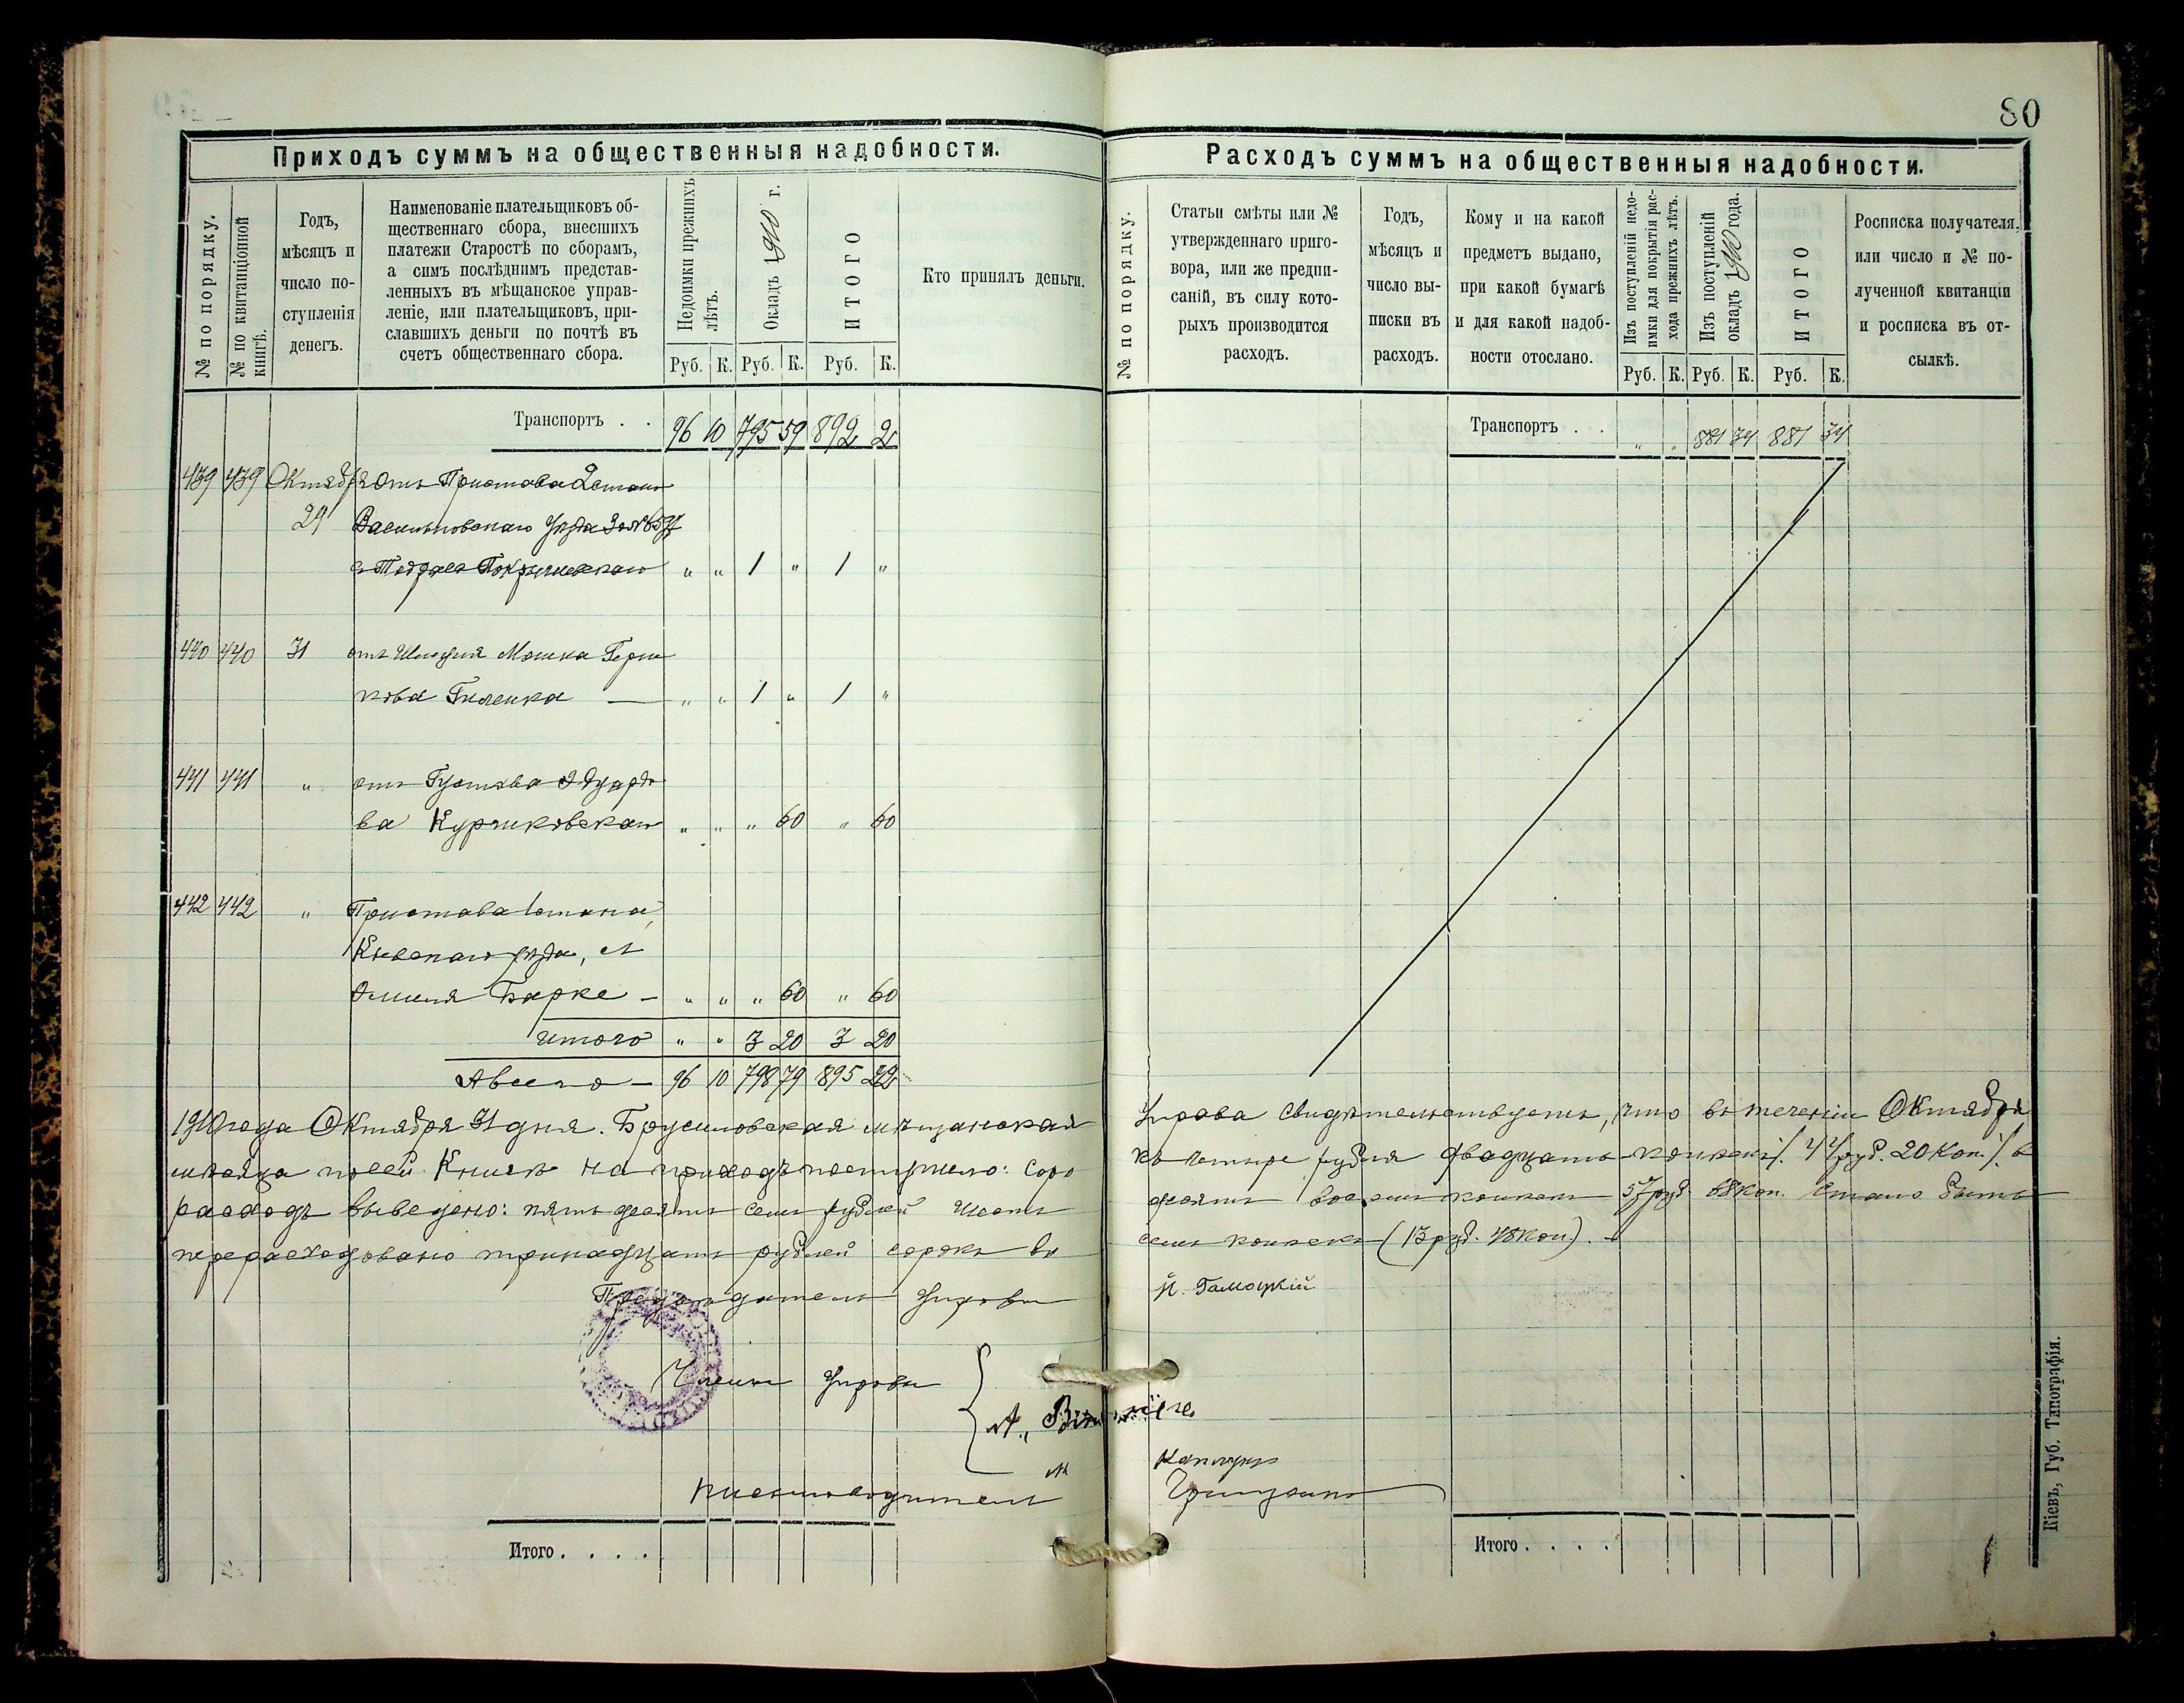 80
Приходъ суммъ на общественныя надобности.
№ по порядку.
№ по квитанціонной книгѣ.
Годъ, мѣсяцъ и число поступленія денегъ.
Наименованіе плательщиковъ об-
щественнаго сбора, внесшихъ
платежи Старостѣ по сборамъ,
а симъ послѣднимъ представ-
ленныхъ въ мѣщанское управ-
леніе, или плательщиковъ, при-
славшихъ деньги по почтѣ въ
счетъ общественнаго сбора.
Недоимки прежнихъ лѣтъ.
Окладъ 1910 г.
ИТОГО
Кто принялъ деньги.
Руб. К. Руб. К. Руб. К.
Транспортъ . . 96 10 795 59 892 2
439 439 Октября отъ Пристава 2 стана
29 Васильковскаго уѣзда за №
с " " 1 " 1 "
440 440 31 отъ Мошка Герш
кова " " 1 " 1 "
441 441 " отъ Густава Эдуардо
ва " " " 60 " 60
442 442 " Пристава 1 стана,
Кіевскаго уѣзда, съ
Эмиля Барке — " " " 60 " 60
итого " " 3 20 3 20
А всего — 96 10 798 79 895 22
1910 года Октября 31 дня. Брусиловская мѣщанская
мѣсяца по сей книгѣ на приходъ поступило: соро
расходъ выведено: пятьдесятъ семь рублей шесть
перерасходовано тринадцать рублей сорокъ во
Предсѣдатель Управы
Члены Управы
А.
Письмоводитель
Итого . . . .
Расходъ суммъ на общественныя надобности.
№ по порядку.
Статьи смѣты или №
утвержденнаго приго-
вора, или же предпи-
саній, въ силу кото-
рыхъ производится
расходъ.
Годъ,
мѣсяцъ и
число вы-
писки въ
расходъ.
Кому и на какой
предметъ выдано,
при какой бумагѣ
и для какой надоб-
ности отослано.
Изъ поступленій недо-
имки для покрытія рас-
хода прежнихъ лѣтъ.
Изъ поступленій
окладъ 1910 года.
ИТОГО
Росписка получателя,
или число и № по-
лученной квитанціи
и росписка въ от-
сылкѣ.
Руб. К. Руб. К. Руб. К.
Транспортъ . . " " 881 34 881 34
Управа свидѣтельствуетъ, что въ теченіи Октября
къ четыре рубля двадцать копѣекъ /. 44 руб. 20 коп. /. въ
десятъ восемь копѣекъ 57 руб. 68 коп. Стало быть
семь копѣекъ (13 руб. 48 коп.).
Гамоцкій
Итого . . . .
Кіевъ, Губ. Типографія.